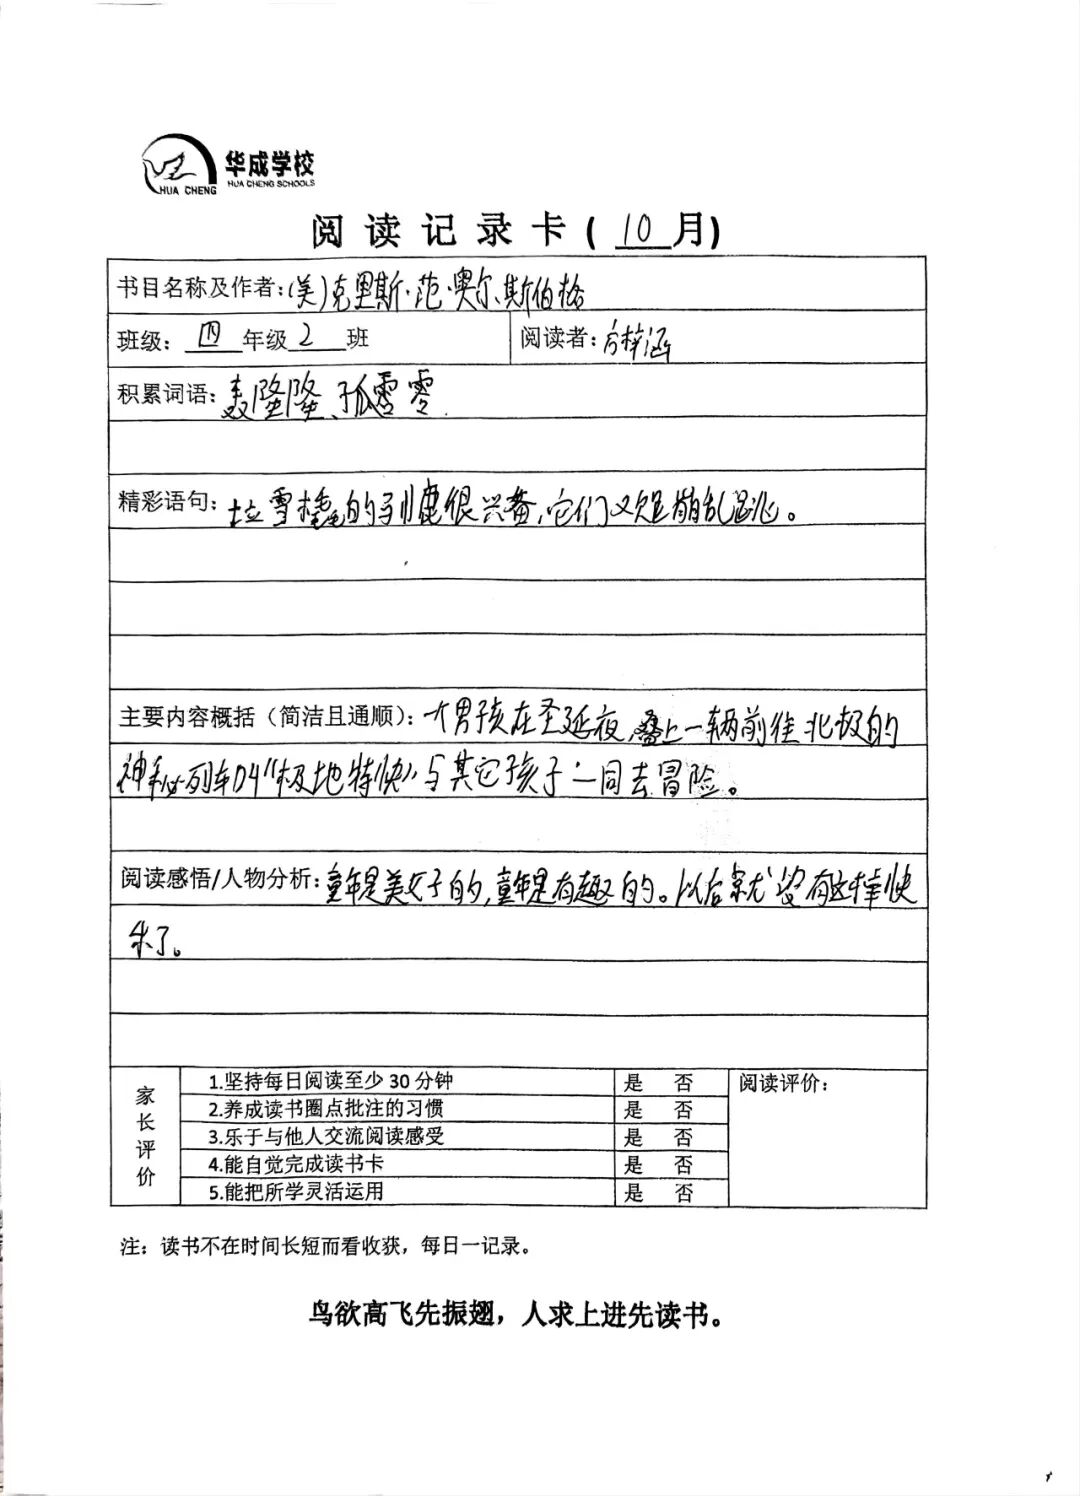 华成学校
HUA CHENG SCHOOLS
HUA CHENG
阅读记录卡(10月)
书目名称及作者:(美)克里斯·范·奥尔斯伯格
班级:四年级2班 阅读者:方梓涵
积累词语:轰隆隆、孤零零
精彩语句:拉雪橇的驯鹿很兴奋,它们又蹦乱跳。
主要内容概括(简洁且通顺):个男孩在圣延夜,登上一辆前往北极的
神秘列车叫“极地特快”与其它孩子一同去冒险。
阅读感悟/人物分析:童年是美好的,童年是有趣的。以后就没有这样快
乐了。
家长评价
1.坚持每日阅读至少30分钟 是 否 阅读评价:
2.养成读书圈点批注的习惯 是 否
3.乐于与他人交流阅读感受 是 否
4.能自觉完成读书卡 是 否
5.能把所学灵活运用 是 否
注:读书不在时间长短而看收获,每日一记录。
鸟欲高飞先振翅,人求上进先读书。